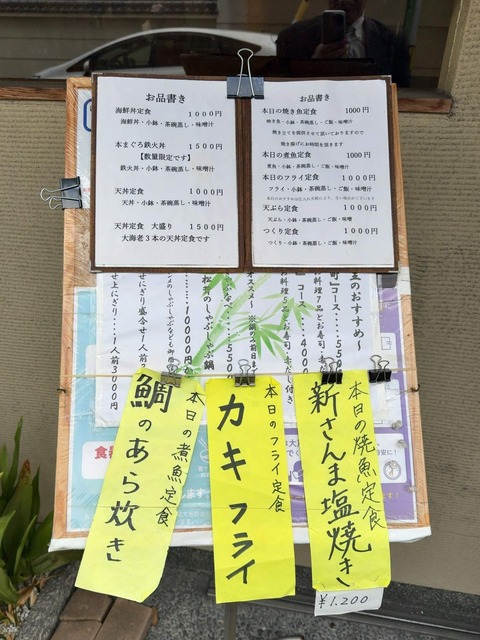 お品書き
海鮮丼定食 1000円
海鮮丼・小鉢・茶碗蒸し・味噌汁
本まぐろ鉄火丼 1500円
【数量限定です】
鉄火丼・小鉢・茶碗蒸し・味噌汁
天丼定食 1000円
天丼・小鉢・茶碗蒸し・味噌汁
天丼定食 大盛り 1500円
大海老3本の天丼定食です
お品書き
本日の焼き魚定食 1000円
焼き魚・小鉢・茶碗蒸し・ご飯・味噌汁
焼き立てを提供させて頂いておりますので
焼き揚げにお時間を頂きます
本日の煮魚定食 1000円
煮魚・小鉢・茶碗蒸し・ご飯・味噌汁
本日のフライ定食 1000円
フライ・小鉢・茶碗蒸し・ご飯・味噌汁
天ぷら定食 1000円
天ぷら・小鉢・茶碗蒸し・ご飯・味噌汁
つくり定食 1000円
つくり・小鉢・茶碗蒸し・ご飯・味噌汁
のおすすめ〜
コース‥‥550
お料理7品とお寿司・赤だし付き
コース‥‥400
お料理5品とお寿司・赤だし付き
オススメ〜 ※鍋のみ前日ま
松茸のしゃぶしゃぶ鍋
10000円か
せにぎり盛合せ1人前
せ上にぎり‥‥1人前3000円
本日の焼魚定食
新さんま塩焼き
¥1,200
本日のフライ定食
カキフライ
本日の煮魚定食
鯛のあら炊き